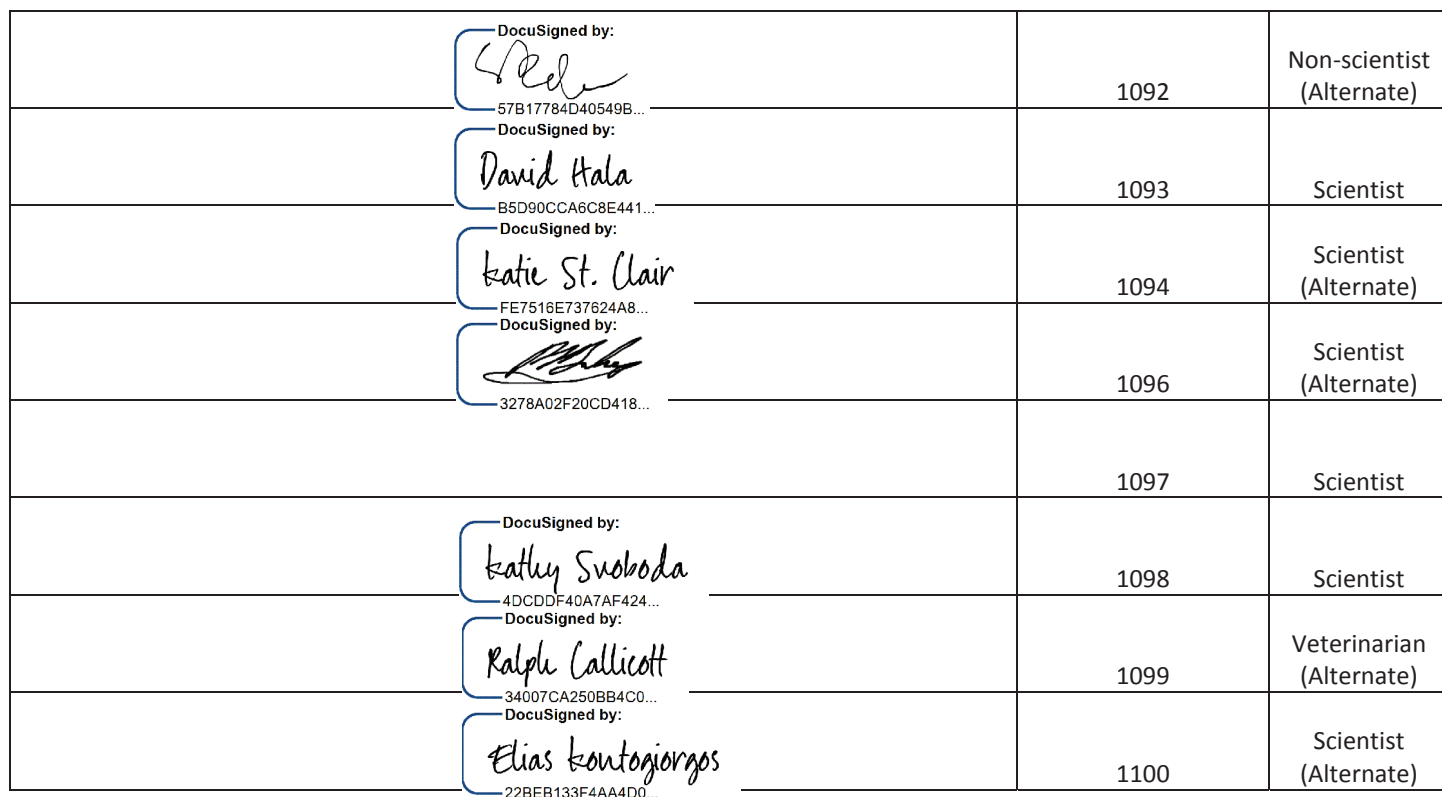 DocuSigned by:
57B17784D40549B...
1092
Non-scientist
(Alternate)
DocuSigned by:
David Hala
B5D90CCA6C8E441...
1093
Scientist
DocuSigned by:
Katie St. Clair
FE7516E737624A8...
1094
Scientist
(Alternate)
DocuSigned by:
3278A02F20CD418...
1096
Scientist
(Alternate)
1097
Scientist
DocuSigned by:
Kathy Svoboda
4DCDDF40A7AF424...
1098
Scientist
DocuSigned by:
Ralph Callicott
34007CA250BB4C0...
1099
Veterinarian
(Alternate)
DocuSigned by:
Elias Kontogiorgos
22BEB133F4AA4D0...
1100
Scientist
(Alternate)